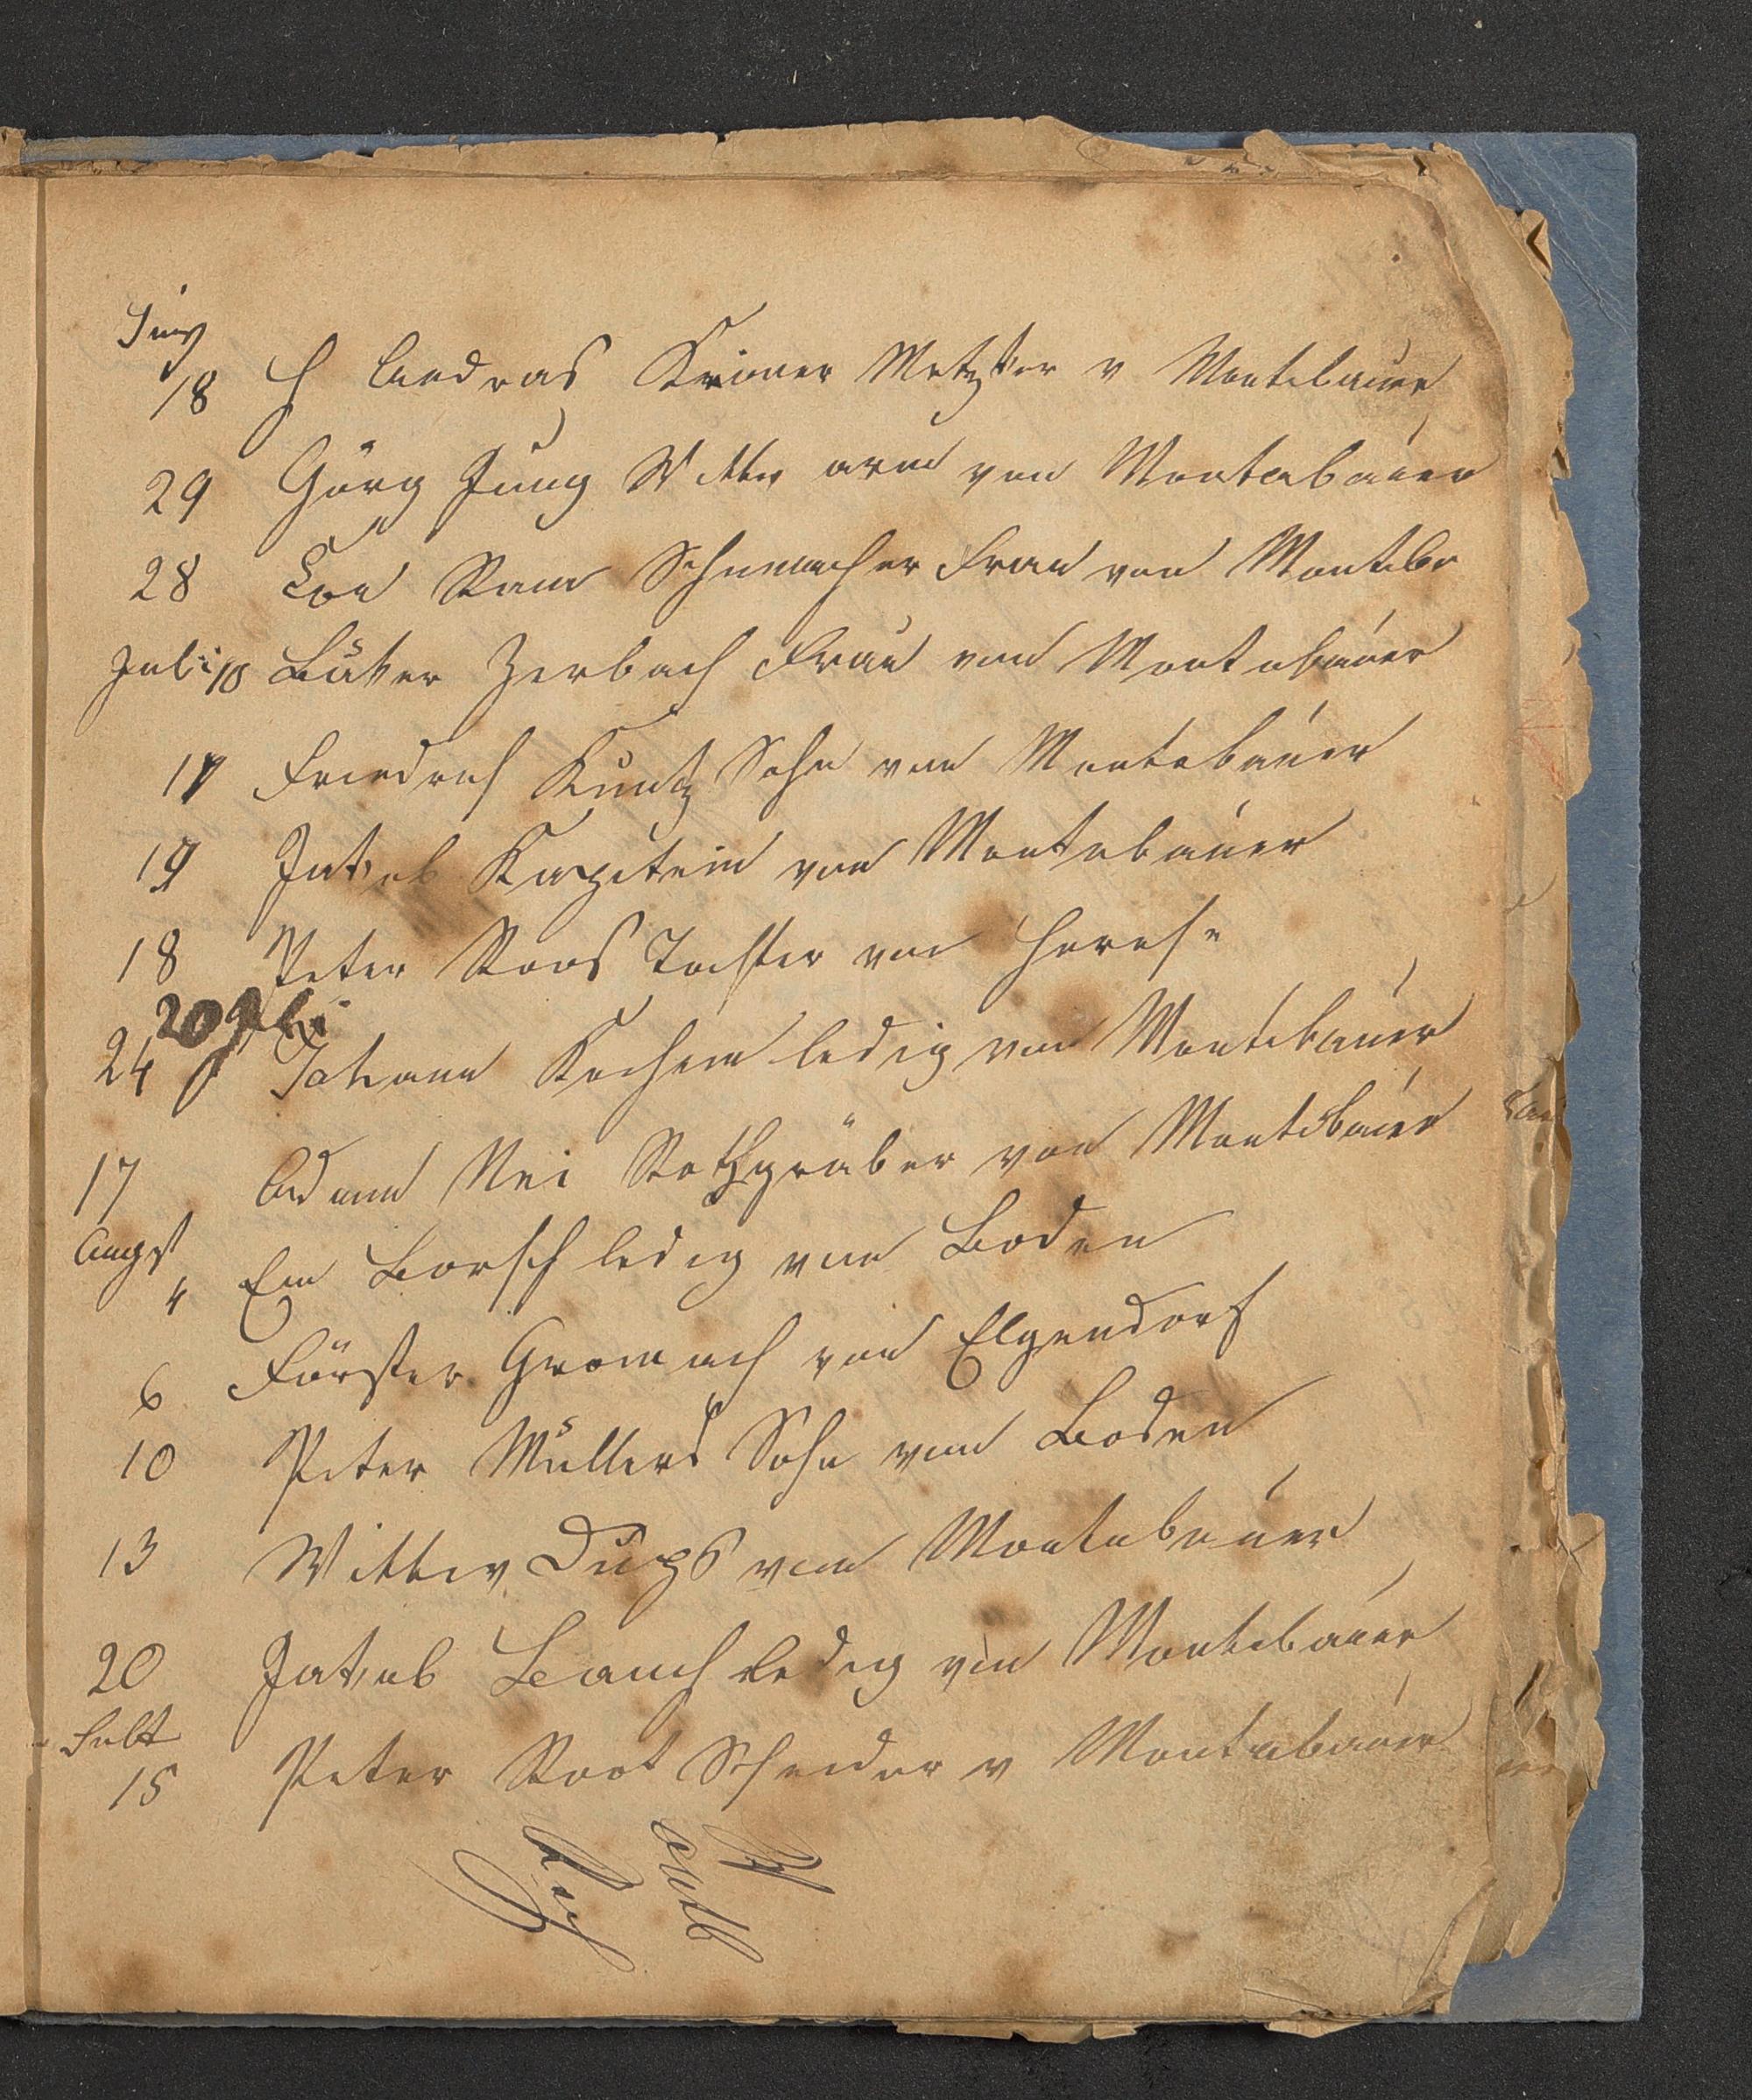 Juny
18 H Andras Krämer Metzger v Montebauer
29 Görg Jung Wittw arm von Montabauer
28 Schumacher Frau von Montebr
Juli 10 Bäker Zerbach Frau von Montabauer
17 Friedrich Kuntz Sohn von Montabauer
19 Jakob Kapitein von Montabauer
18 Peter Roos Tochter von Horese
20 Juli
24 Johann Kochem ledig von Montebauer
17 Adam Nei von Montebauer
Augst
4 Ein Borsch ledig von Boden
6 Förster Gromach von Elgendorf
10 Peter Müllers Sohn von Boden
13 Wittw Dups von Montabauer
20 Jakob Bauch ledig von Montebauer
15 Peter Root Schneider v Montabauer